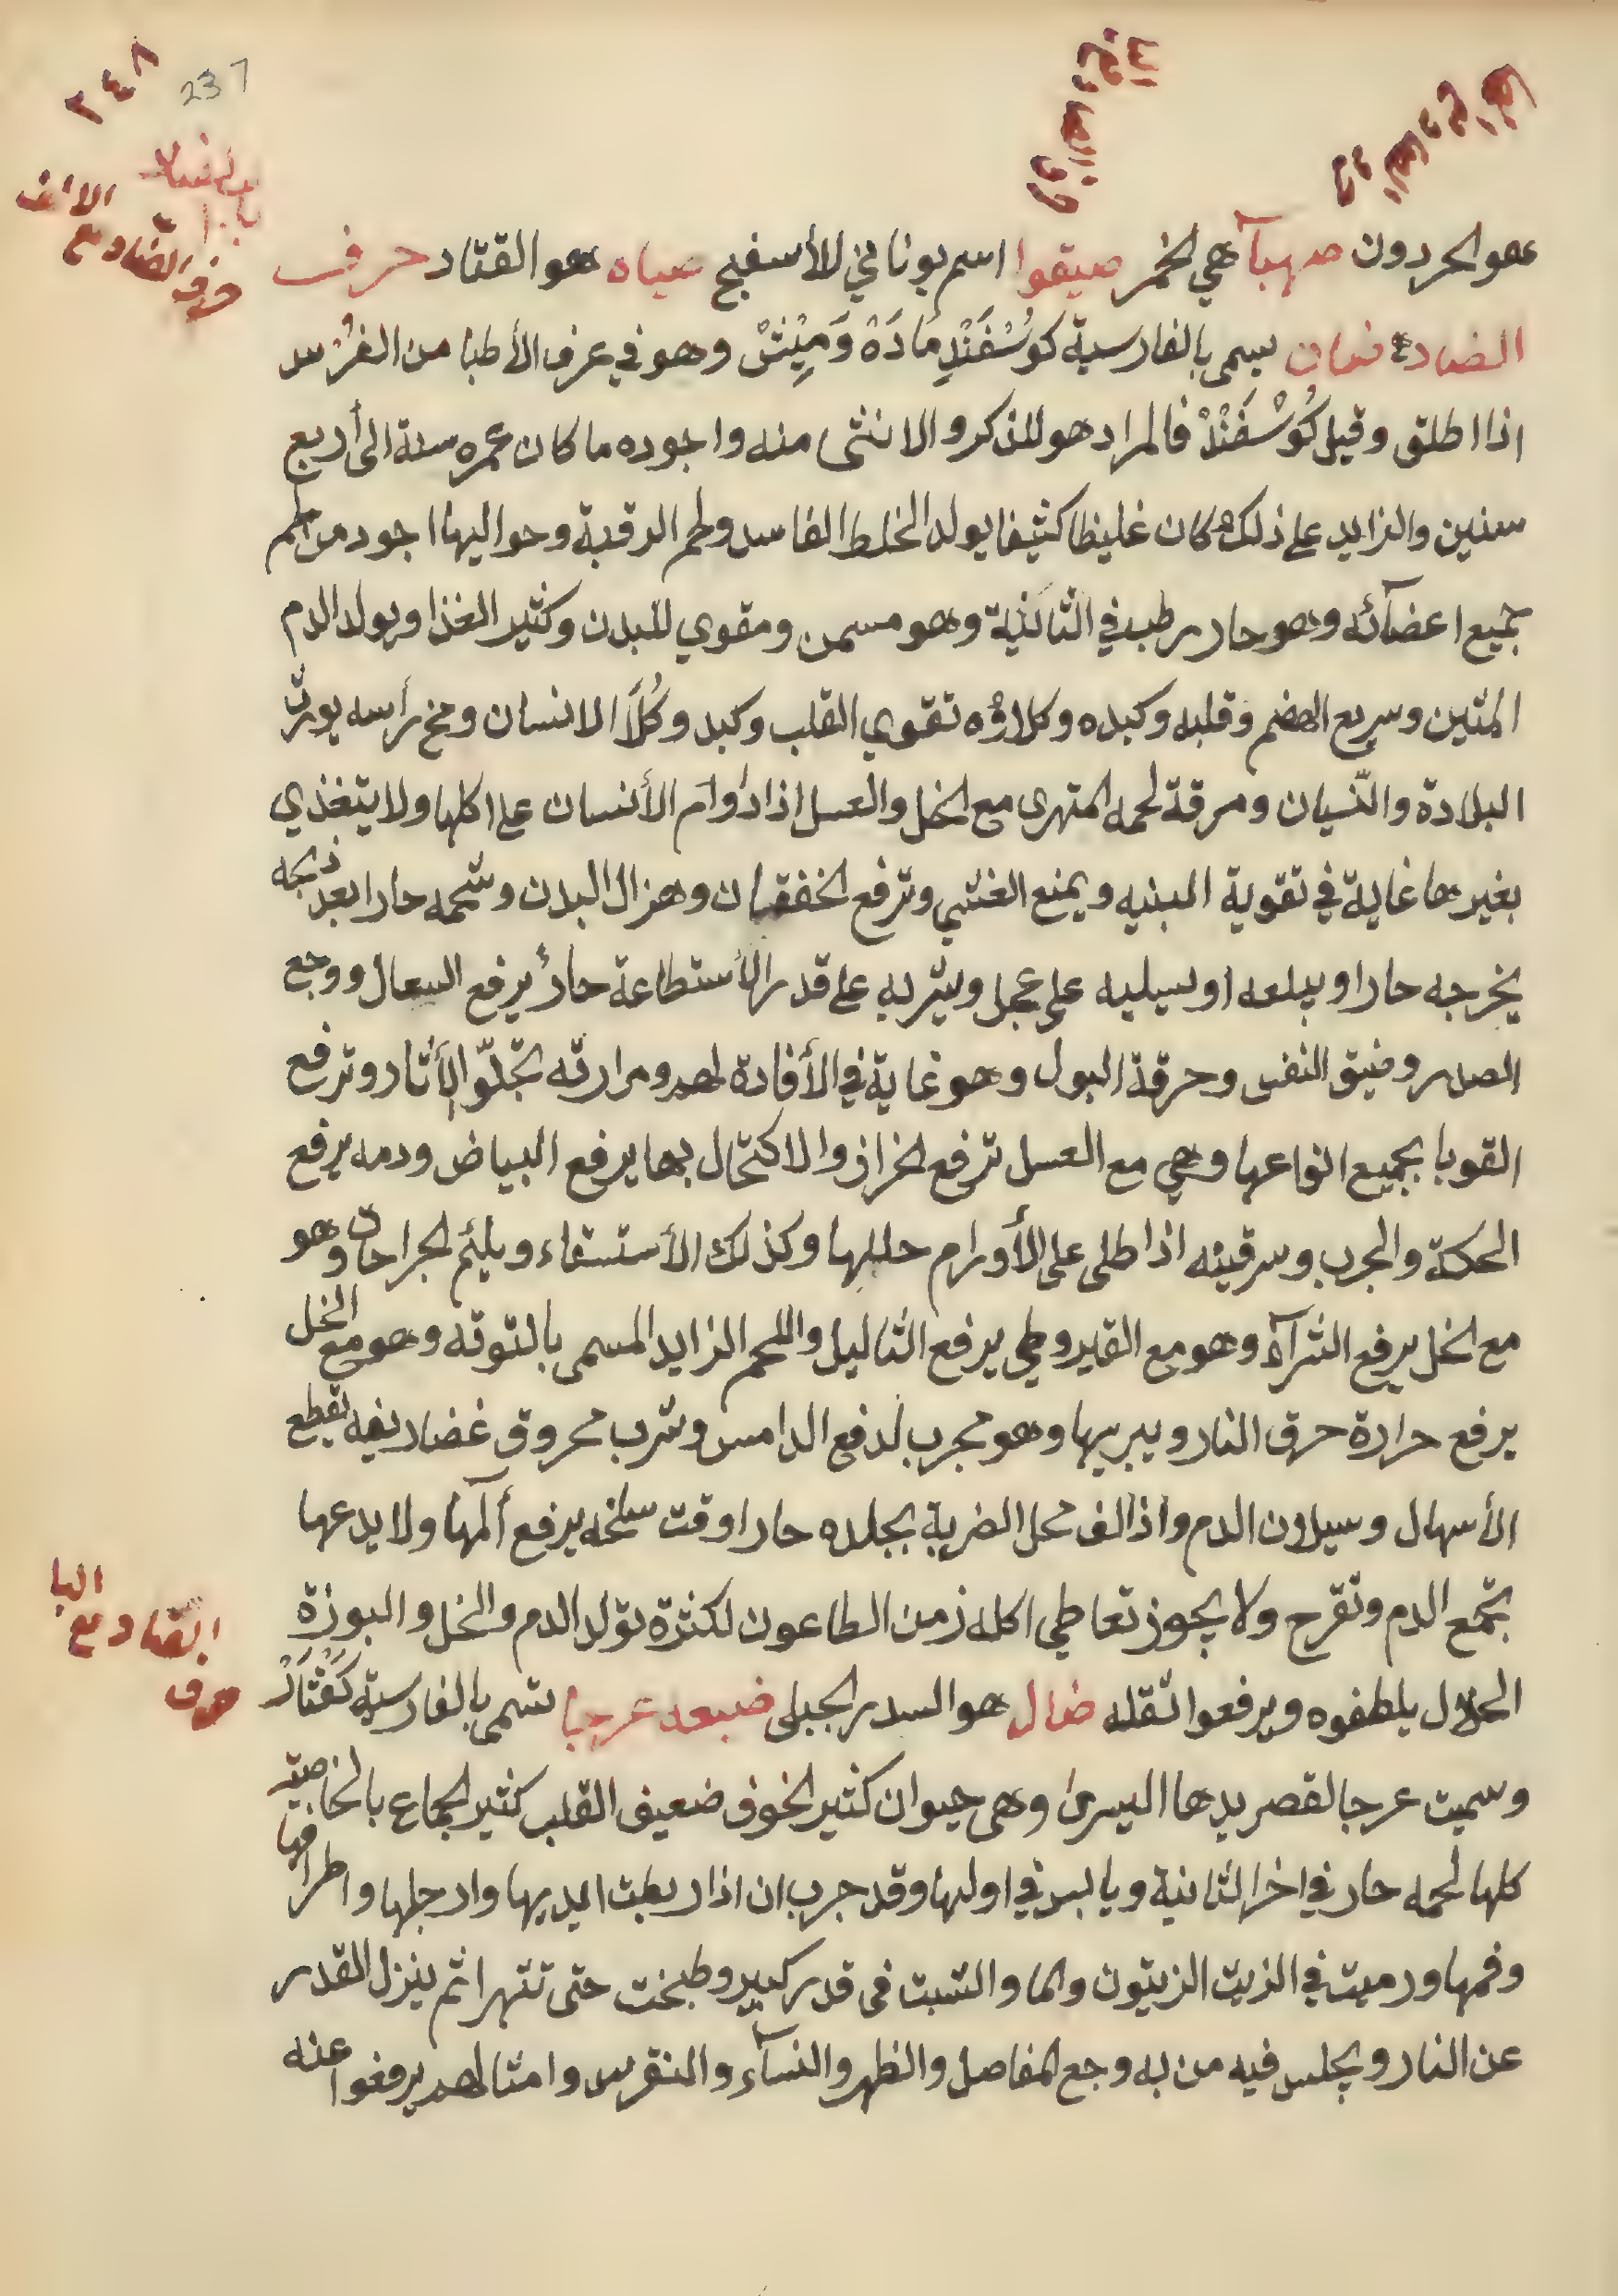 ٢٤٨
237
حرف الضاد مع الالف
هو الحردون صهبآ هي الخمر صيقوا اسم يوناني للأسفنج صياه هو القتاد حرف
الضاد ضان يسمى بالفارسية كوُسْفَنْدِ مَادَهْ وَمِيْشْ وهو في عرف الأطبا من الفرُس
اذا اطلق وقيل كُوسْفَنْدْ فالمراد هو للذكر والانثى منه واجوده ما كان عمره سنة الى أربع
سنين والزايد على ذلك كان غليظا كثيفا يولد الخلط الفاسد ولحم الرقبة وحواليها اجود من لحم
جميع اعضآئه وهو حار رطب في الثانية وهو مسمن ومقوي للبدن وكثير الغذا ويولد الدم
المتين وسريع الهضم وقلبه وكبده وكلاؤه تقوي القلب وكبد وكُلاَ الانسان ومخ رأسه يورث
البلادة والنّسيان ومرقة لحمه المتهرى مع الخل والعسل اذا داوم الأنسان على اكلها ولا يتغذي
بغيرها غاية في تقوية البنيه ويمنع الغشي وترفع الخفقان وهزال البدن وشحمه حارا بعد ذبحه
يخرجه حارا ويبلعه او يسليه على عجل ويشربه على قدر الأستطاعة حارُ يرفع السعال ووجع
الصدر وضيق النفس وحرقة البول وهو غاية في الأفادة لهم ومرارته تجلّو الأثار وترفع
القوبا بجميع انواعها وهي مع العسل ترفع الخزاز والاكتحال بها يرفع البياض ودمه يرفع
الحكة والجرب وسرقينه اذا طلى على الأورام حللها وكذلك الأستسقاء ويلئم الجراحات وهو
مع الخل يرفع الشرآء وهو مع القيروطي يرفع الثاليل واللحم الزايد المسمى بالتوته وهو مع الخل
يرفع حرارة حرق النار ويبريها وهو مجرب لدفع الدامس وشرب محروق غضاريفه يقطع
الأسهال وسيلان الدم واذا لف محل الضربة بجلده حارا وقت سلخه يرفع ألمها ولا يدعها
تجمع الدم وتقرح ولا يجوز تعاطي اكله زمن الطاعون لكثرة تولد الدم والخل والبوزة
حرف الضاد مع البا
الحلال يلطفوه ويرفعوا ثقله ضال هو السدر الجبلى ضبعه عرجا تسمى بالفارسية كَفْتَارْ
وسميت عرجا لقصر يدها اليسرىٰ وهى حيوان كثير الخوف ضعيف القلب كثير الجماع بالخاصيّه
كلها لحمه حار في اخر الثانية ويابس في اولها وقد جرب ان اذا ربطت ايديها وارجلها واطرافها
وفمها ورميت في الزيت الزيتون والما والشبت فى قدر كبير وطبخت حتى تتهرا ثم ينزل القدر
عن النار ويجلس فيه من به وجع المفاصل والظهر والنسآء والنقرس وامثالهم يرفعوا عنه